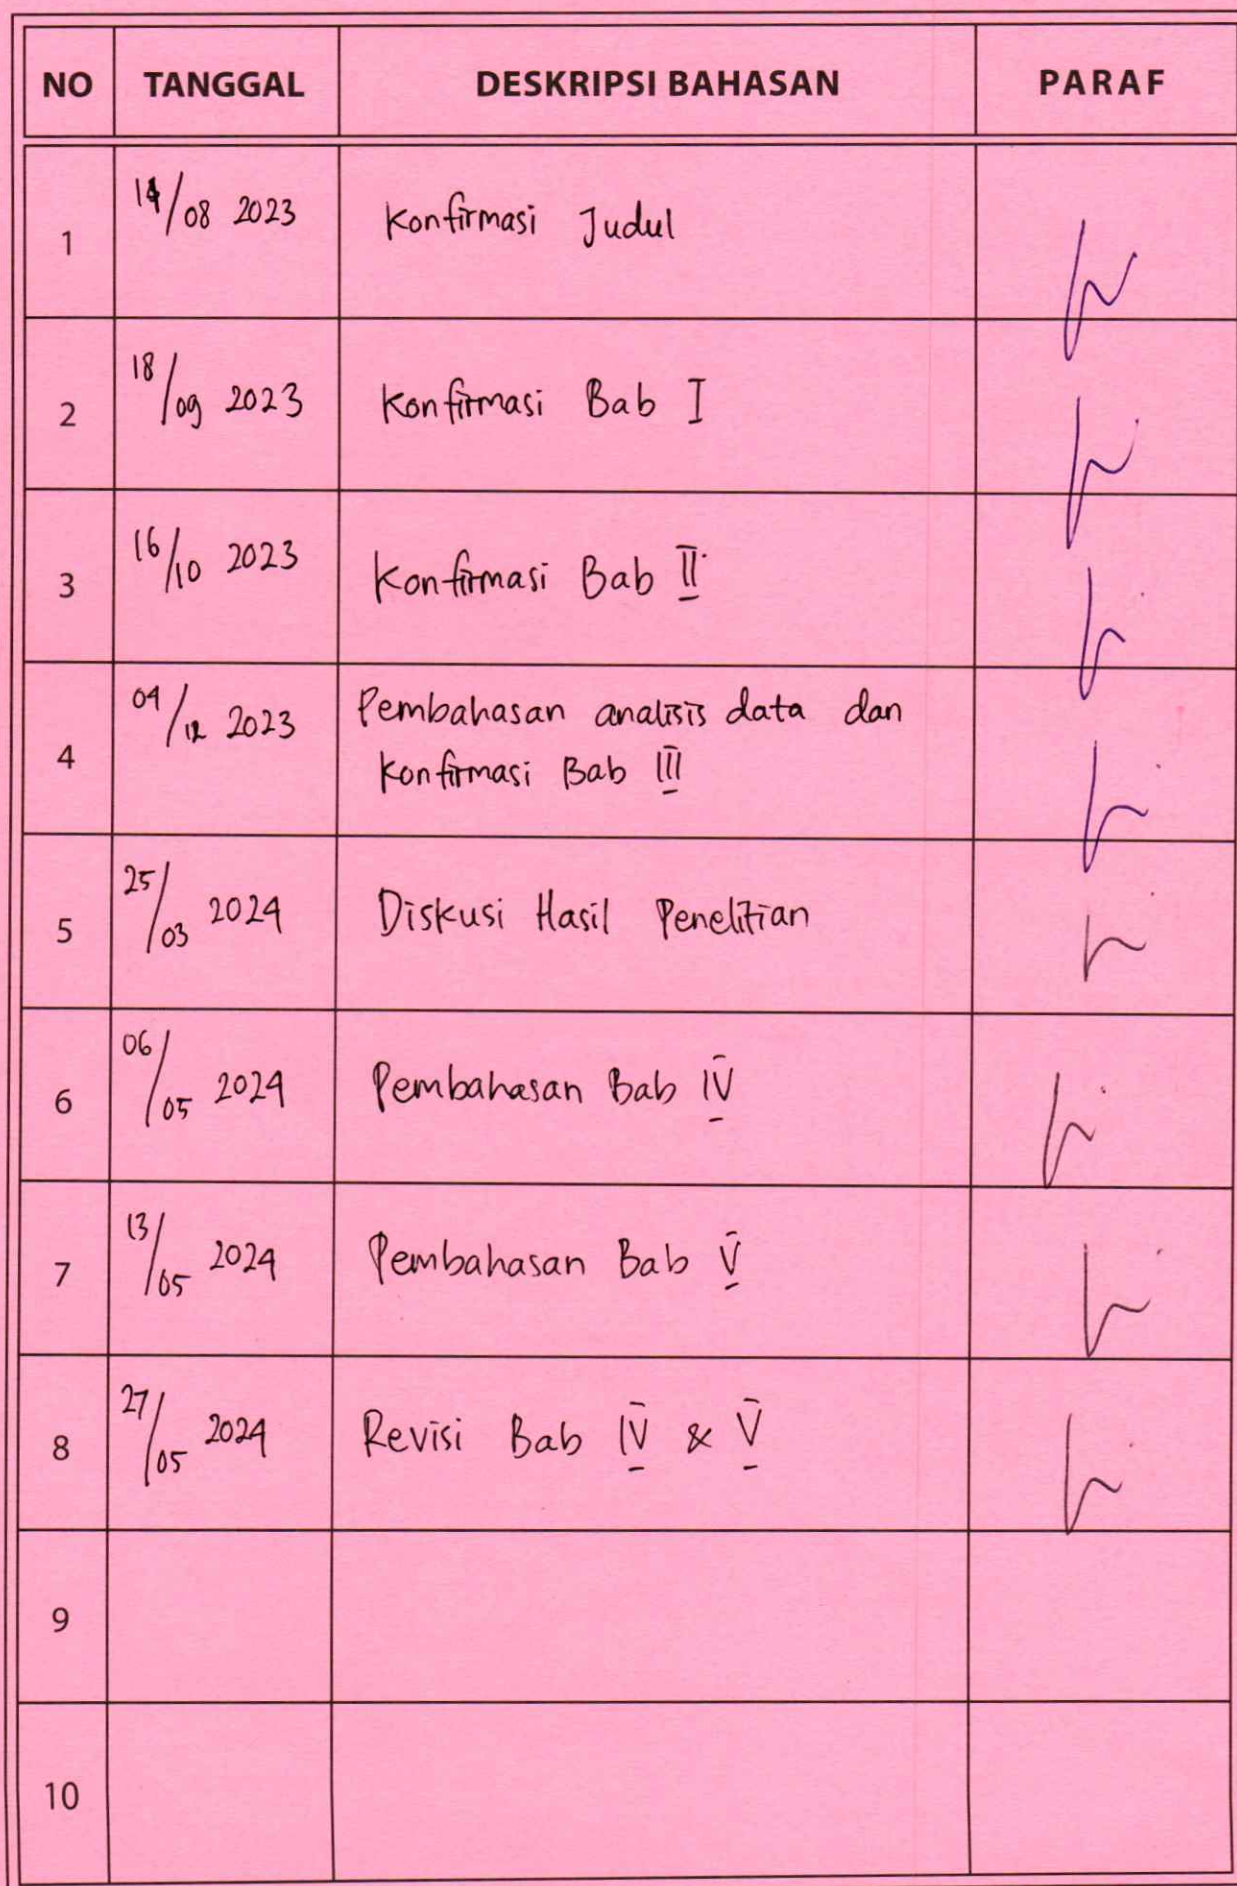 NO TANGGAL DESKRIPSI BAHASAN PARAF
1 14/08 2023 Konfirmasi Judul
2 18/09 2023 Konfirmasi Bab I
3 16/10 2023 Konfirmasi Bab II
4 04/12 2023 Pembahasan analisis data dan
Konfirmasi Bab III
5 25/03 2024 Diskusi Hasil Penelitian
6 06/05 2024 Pembahasan Bab IV
7 13/05 2024 Pembahasan Bab V
8 27/05 2024 Revisi Bab IV & V
9
10